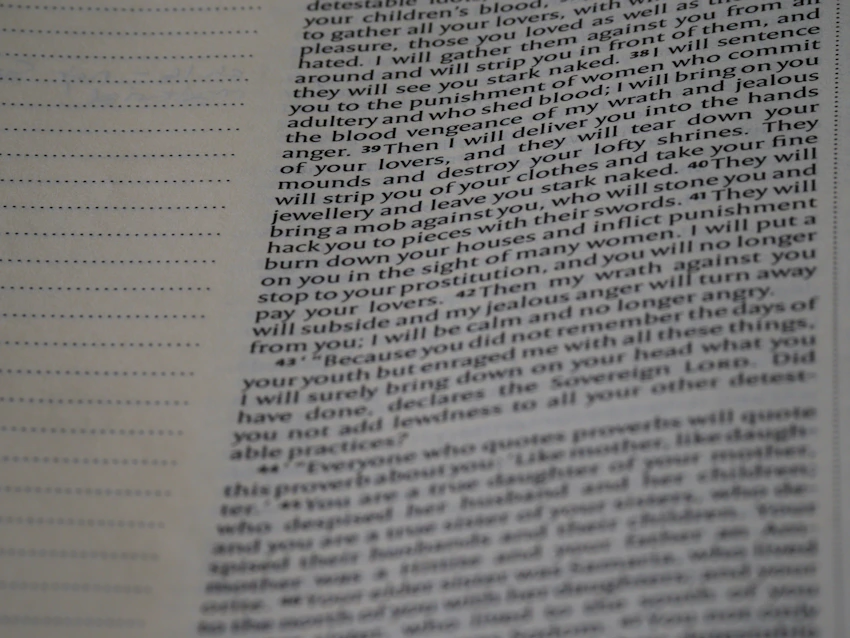 detestable
your children's blood,
to gather all your lovers, with
pleasure, those you loved as well as
hated. I will gather them against you from all
around and will strip you in front of them, and
they will see you stark naked. 38 I will sentence
you to the punishment of women who commit
adultery and who shed blood; I will bring on you
the blood vengeance of my wrath and jealous
anger. 39 Then I will deliver you into the hands
of your lovers, and they will tear down your
mounds and destroy your lofty shrines. They
will strip you of your clothes and take your fine
jewellery and leave you stark naked. 40 They will
bring a mob against you, who will stone you and
hack you to pieces with their swords. 41 They will
burn down your houses and inflict punishment
on you in the sight of many women. I will put a
stop to your prostitution, and you will no longer
pay your lovers. 42 Then my wrath against you
will subside and my jealous anger will turn away
from you; I will be calm and no longer angry.
43 ' "Because you did not remember the days of
your youth but enraged me with all these things,
I will surely bring down on your head what you
have done, declares the Sovereign LORD. Did
you not add lewdness to all your other detest-
able practices?
44 ' "Everyone who quotes proverbs will quote
this proverb about you: 'Like mother, like daugh-
ter.' 45 You are a true daughter of your mother,
who despised her husband and her children;
and you are a true sister of your sisters, who de-
spised their husbands and their children. Your
mother was a Hittite and your father an Am-
orite. 46 Your elder sister was Samaria, who lived
to the north of you with her daughters; and your